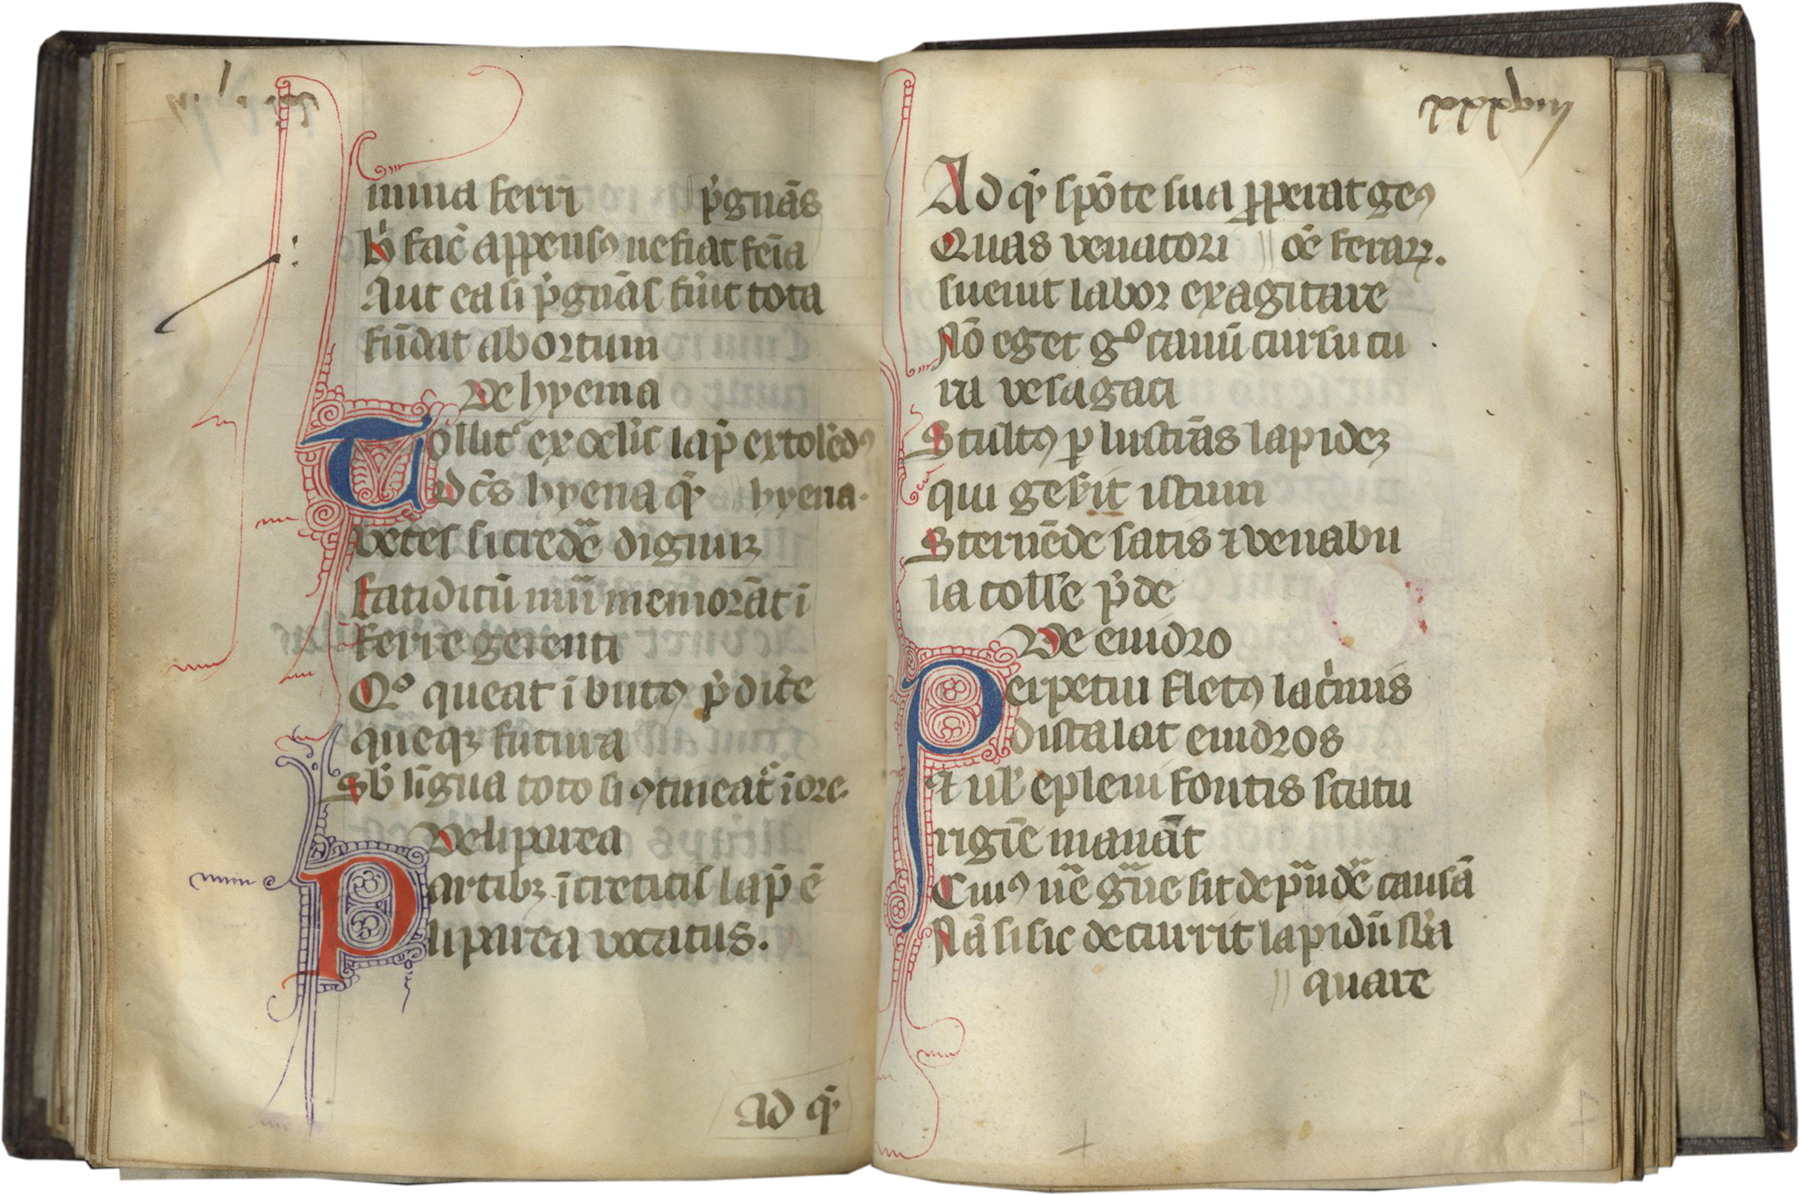 mina ferri p̄gnās
Ʋ fac̄ appensꝰ ne fiat fēīa
Aut ea si p̄gnās fūit tota
fūdat abortum
De hyema
Tollit᷒ ex oclīs lap̄ extolēdꝰ
Ad c̄s hyena q̄ hyena.
vetes si credē dignuꝫ
fatidicū mīī memorāt ī
ferre gerenti
Qͦ queat ī butꝰ p̄dic̄e
queqꝫ futura
Sƀ līgua toto si ꝯtineat᷒ ī ore
De liparea
Partibꝫ ī creticis lap̄ ē
liparea vocatus.
Ad q̄
xxxviii
Ad q̄ spōte sua ꝓperat genꝰ
Quas venatori oē feraꝝ.
sueuit labor exagitare
Nō eget gͦ canū cursu cu
ra ve sagaci
Stultꝰ ꝑlustrās lapideꝫ
qui geƀit istum
Sternēde satis ⁊ venabu
la tolle p̄de
De enidro
Perpetui fletꝰ lac̄mis
distalat enidros
Qͥ uł e pleni fontis scatu
rigīe manāt
Cuiꝰ nē gͣue sit dep̄ndē causā
Nā si sic decurrit lapidū sƀa
quare